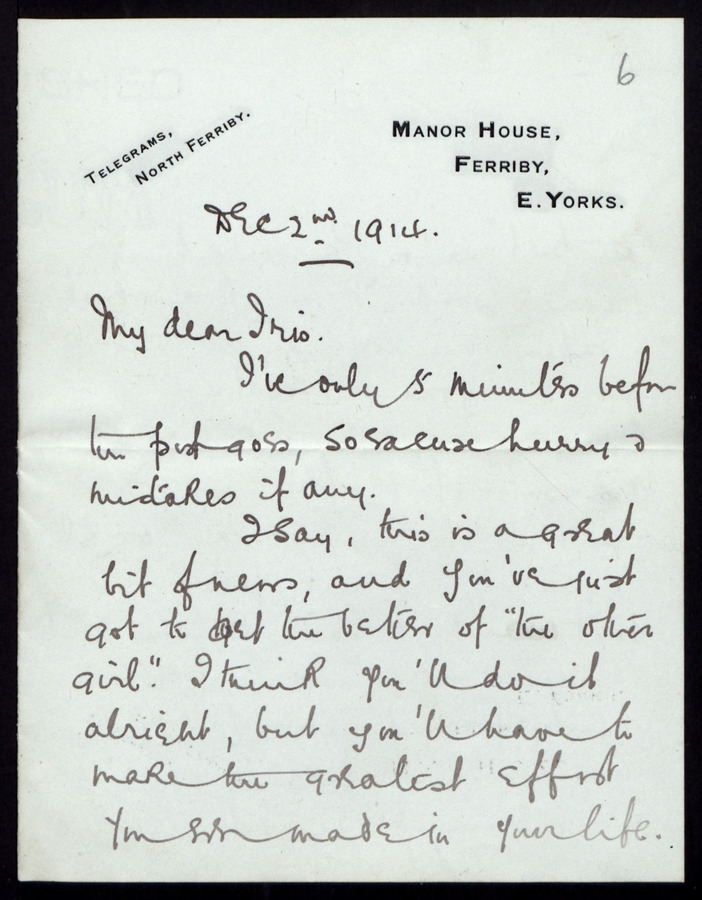 6
TELEGRAMS,
NORTH FERRIBY.
MANOR HOUSE,
FERRIBY,
E. YORKS.
DEC 2nd 1914.
My dear Iris.
I've only 5 minutes before
the post goes, so excuse hurry &
mistakes if any.
I say, this is a great
bit of news, and you've just
got to get the better of "the other
girl". I think you'll do it
alright, but you'll have to
make the greatest effort
you ever made in your life.